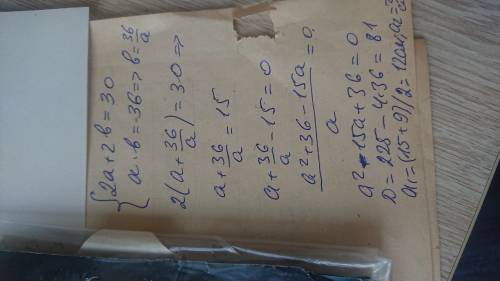 { 2a+2b=30
a·b=36=> b=36/a
2(a+36/a)=30=>
a+36/a=15
a+36/a-15=0
(a²+36-15a)/a=0
a²-15a+36=0
D=225-4·36=81
a₁=(15+9)/2=12см;